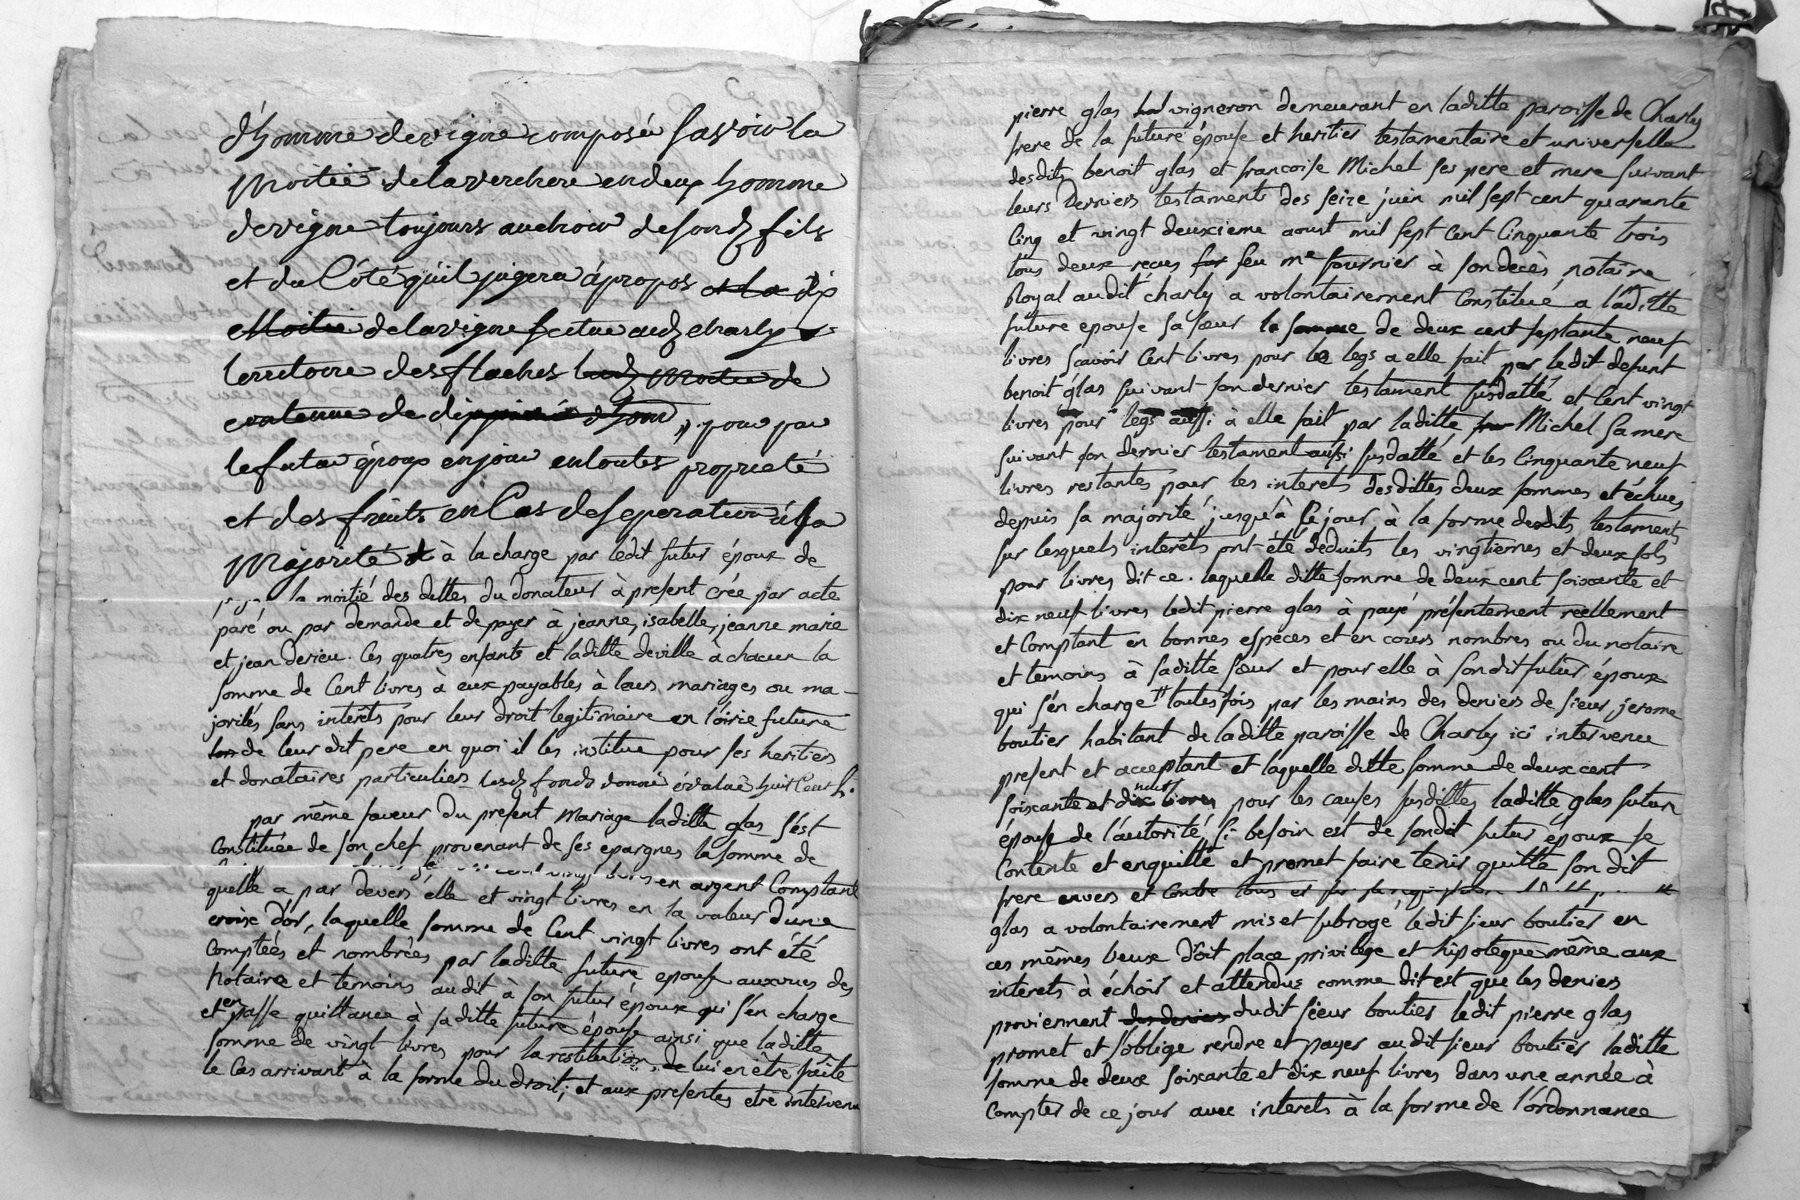 d'homme de vigne composée sçavoir la
Moitié de la verchere en deux homme
de vigne toujours au choix de sondt fils
et du Côté qu'il jugera á propos et la dix
Moitié de la vigne scitue audt charly
territoire des flaches ladt Moitie de
contenue de dix d'hom, pour par
le futur époux en jouir en toutes propriété
et des fruits en Cas de separation á sa
Majorité à la charge par ledit futur époux de
la moitié des dettes du donateur à present crée par acte
paré ou par demande et de payer à jeanne, isabelle, jeanne marie
et jean derieu. Ces quatres enfants et laditte deville à chacun la
somme de Cent livres à eux payables à leurs mariages ou ma-
jorités sans interets pour leur droit legitimaire en l'oirie future
de leur dit pere en quoi il les institue pour ses heritiers
et donataires particuliers lesdt fonds donné évalué huit Cent L.
par même faveur du present Mariage laditte glas s'est
Constituée de son chef provenant de ses epargnes la somme de
cent vingt livres en argent Comptant
quelle a par devers elle et vingt livres en la valeur dune
croix d'or, laquelle somme de Cent vingt livres ont été
comptées et nombrées par laditte future epouse aux vues des
Notaire et temoins audit à son futur époux qui s'en charge
et en passe quittance à saditte future épouse ainsi que laditte
somme de vingt livres pour la restitution de lui en être faite
le Cas arrivant à la forme du droit; et aux presentes etre intervenu
pierre glas vigneron demeurant en laditte paroisse de Charly
frere de la future épouse et heritier testamentaire et universelle
desdits benoit glas et francoise Michel ses pere et mere suivant
leurs Derniers testaments des seize juin mil sept cent quarante
Cinq et vingt deuxieme aoust mil sept cent Cinquante trois
tous deux recus feu me fournier à son decès notaire
Royal audit charly a volontairement Constitué a laditte
future epouse sa sœur la somme de deux cent septante neuf
livres sçavoir Cent livres pour le legs a elle fait par ledit defunt
benoit glas suivant son dernier testament susdatté et Cent vingt
livres pour legs aussi à elle fait par laditte Michel sa mere
suivant son dernier testament aussi susdatté et les Cinquante neuf
livres restantes pour les interets desdittes deux sommes et échues
depuis sa majorité jusqu'à Ce jour, à la forme desdits testaments
sur lesquels interêts ont été deduits les vingtiemes et deux sols
pour livres dit ce. laquelle ditte somme de deux cent soixante et
dix neuf livres ledit pierre glas à payé présentement réellement
et Comptant en bonnes espèces et en cours nombres ou du notaire
et temoins à saditte sœur et pour elle à son dit futur époux
qui s'en charge toutesfois par les mains des deniers de sieur jerome
boutier habitant de laditte paroisse de Charly ici intervenu
present et acceptant et laquelle ditte somme de deux cent
soixante et dix neuf livres pour les causes susdittes laditte glas future
épouse de l'autorité si besoin est de sondit futur époux se
Contente et enquitte et promet faire tenir quitte son dit
frere envers et contre tous
glas a volontairement mis et subrogé ledit sieur boutier en
ces mêmes lieux Droit place privilege et hipoteque même aux
interets à échoir et attendus comme dit est que les deniers
proviennent des deniers dudit sieur boutier ledit pierre glas
promet et s'oblige rendre et payer audit sieur boutier laditte
somme de deux soixante et dix neuf livres dans une année à
Compter de ce jour avec interets à la forme de l'ordonnance